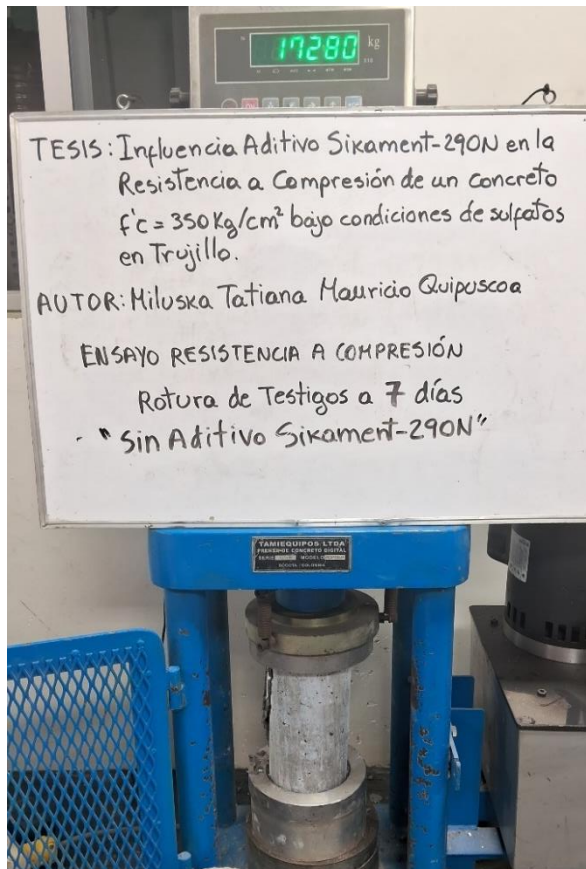 17280 kg
TESIS: Influencia Aditivo Sikament-290N en la
Resistencia a Compresión de un concreto
f'c = 350 Kg/cm² bajo condiciones de sulfatos
en Trujillo.
AUTOR: Miluska Tatiana Mauricio Quipuscoa
ENSAYO RESISTENCIA A COMPRESIÓN
Rotura de Testigos a 7 días
"Sin Aditivo Sikament-290N"
TAMIEQUIPOS LTDA
PRENSA DE CONCRETO DIGITAL
SERIE MODELO
BOGOTA COLOMBIA